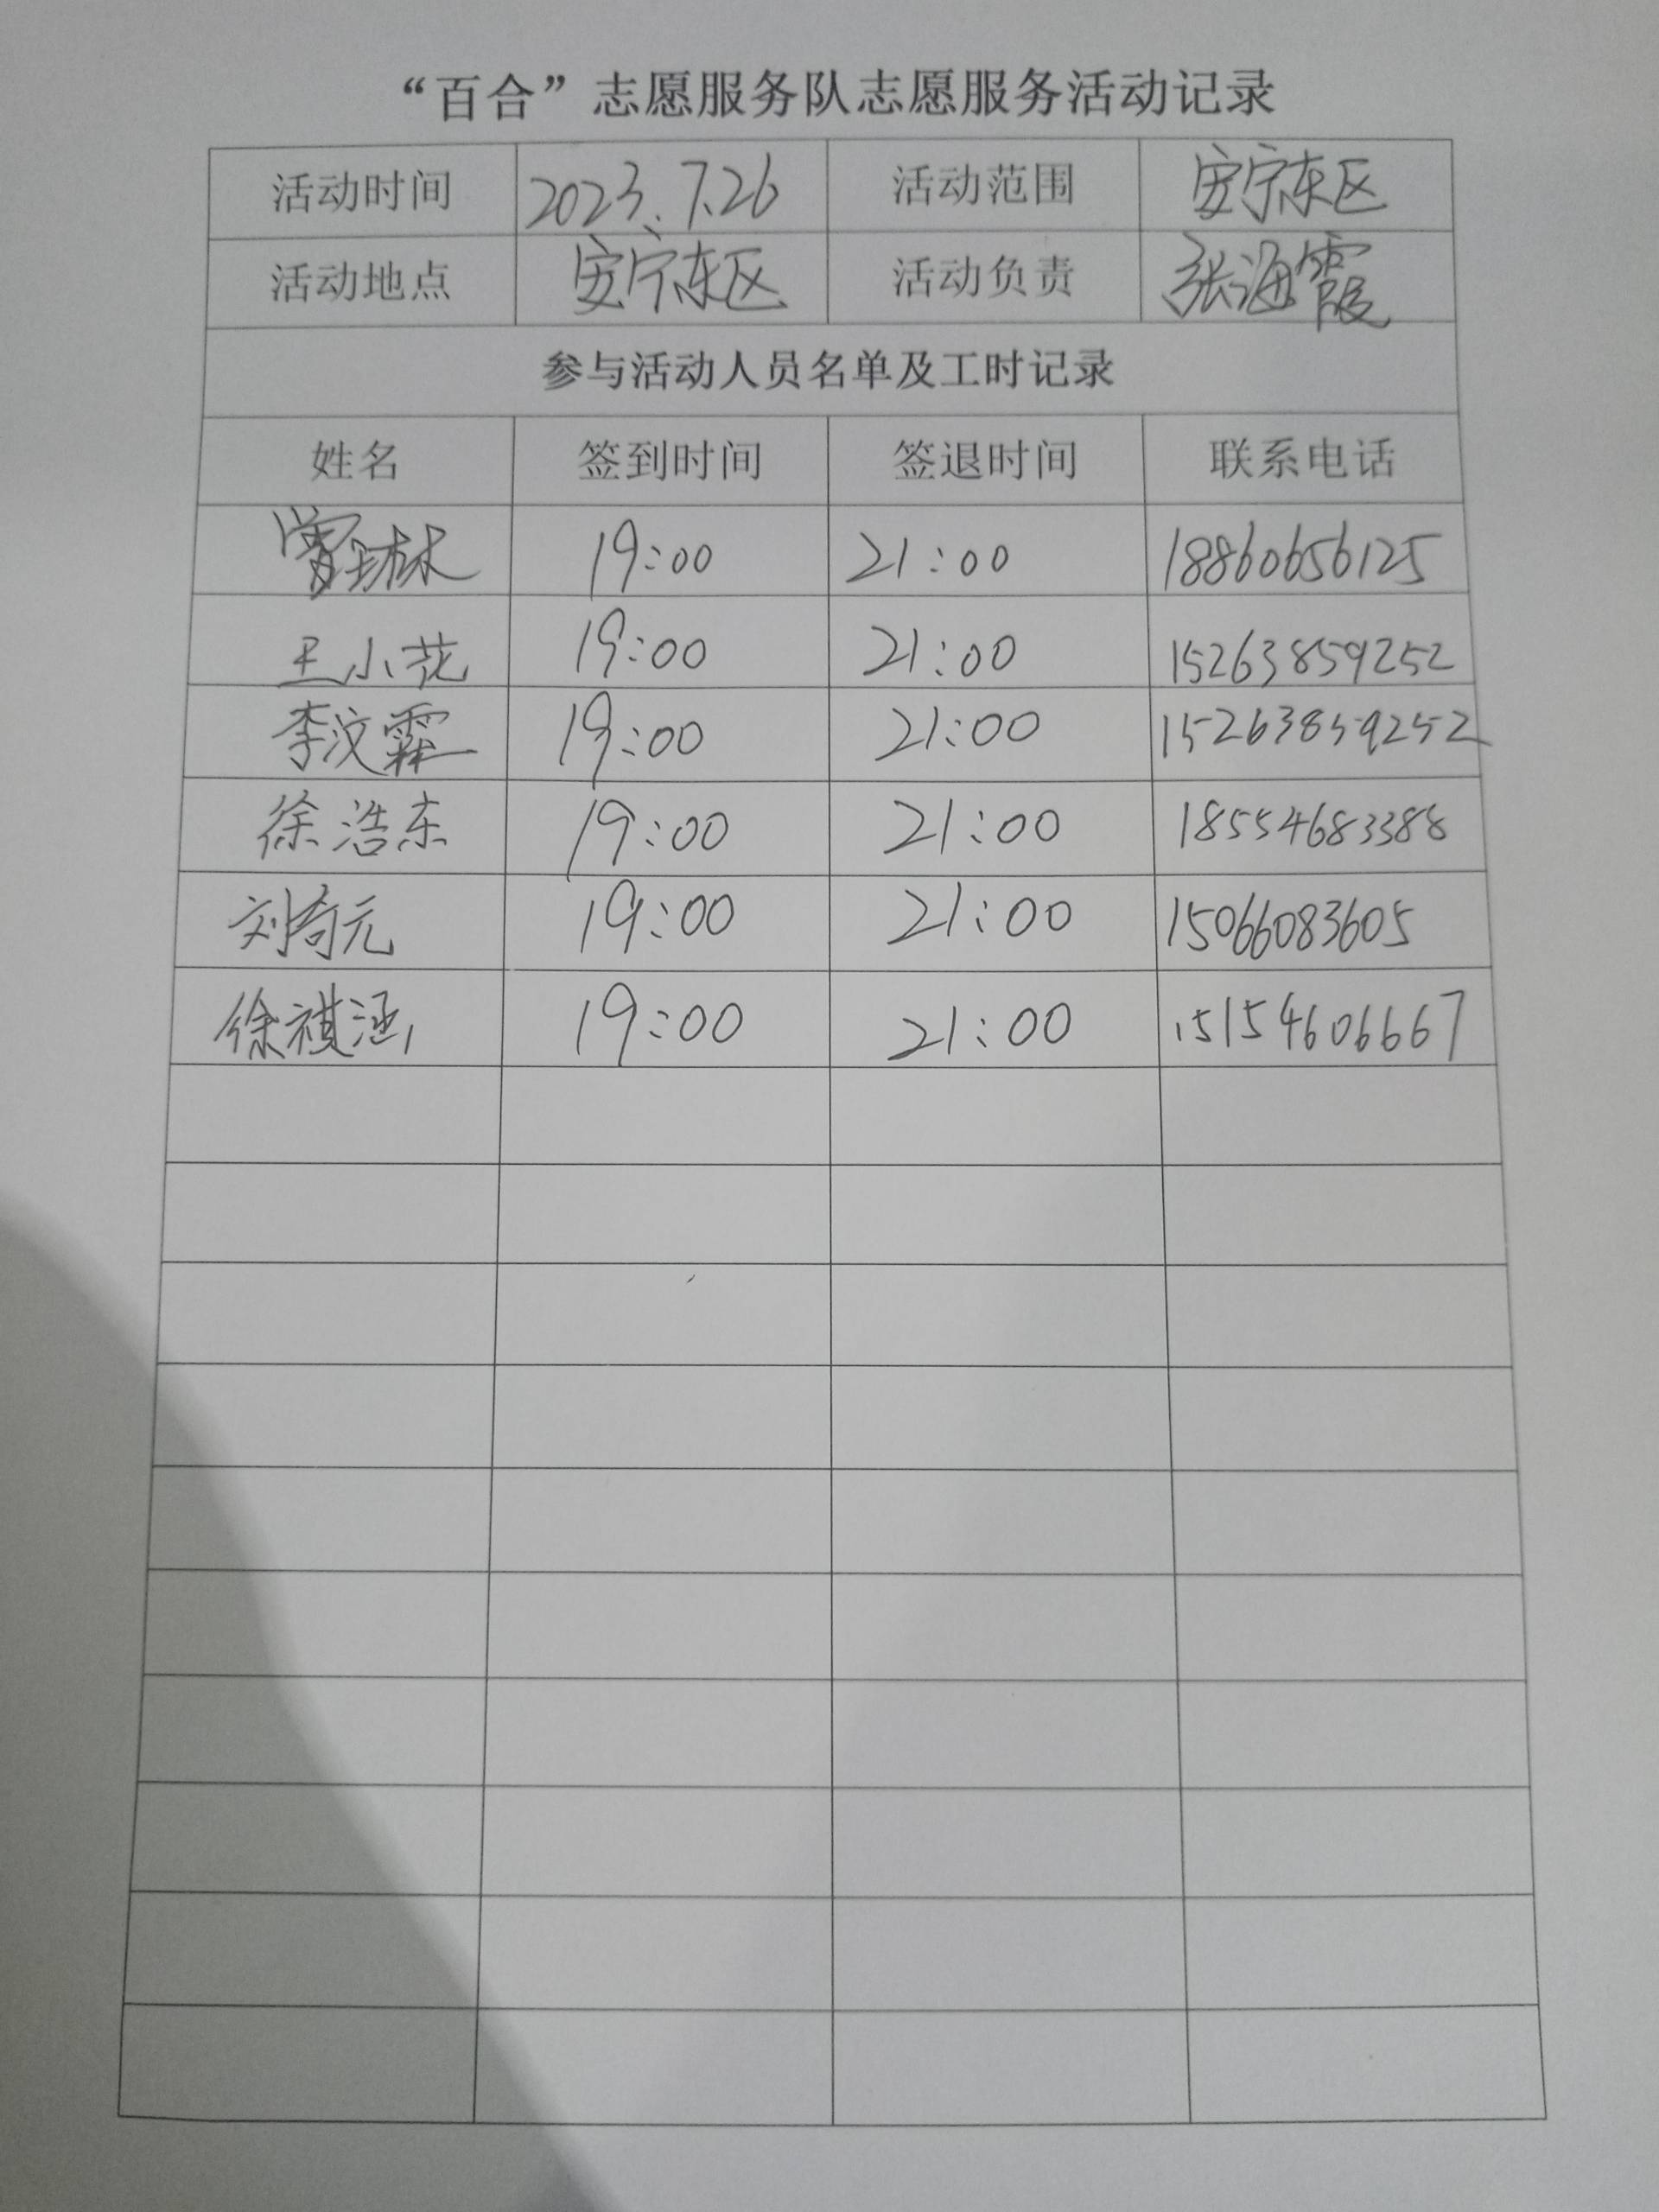 “百合”志愿服务队志愿服务活动记录
活动时间 2023.7.26 活动范围 安宁东区
活动地点 安宁东区 活动负责 张海霞
参与活动人员名单及工时记录
姓名 签到时间 签退时间 联系电话
19:00 21:00 18860656125
王小花 19:00 21:00 15263859252
李汶霖 19:00 21:00 15263859252
徐浩东 19:00 21:00 18554683388
刘奇元 19:00 21:00 15066083605
徐祺涵 19:00 21:00 15154606667